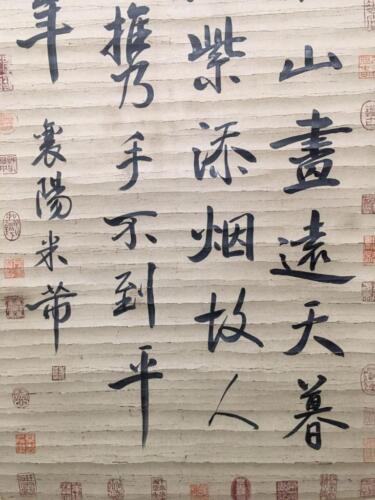 山畫遠天暮
紫添烟故人
携手不到平
年
襄陽米芾